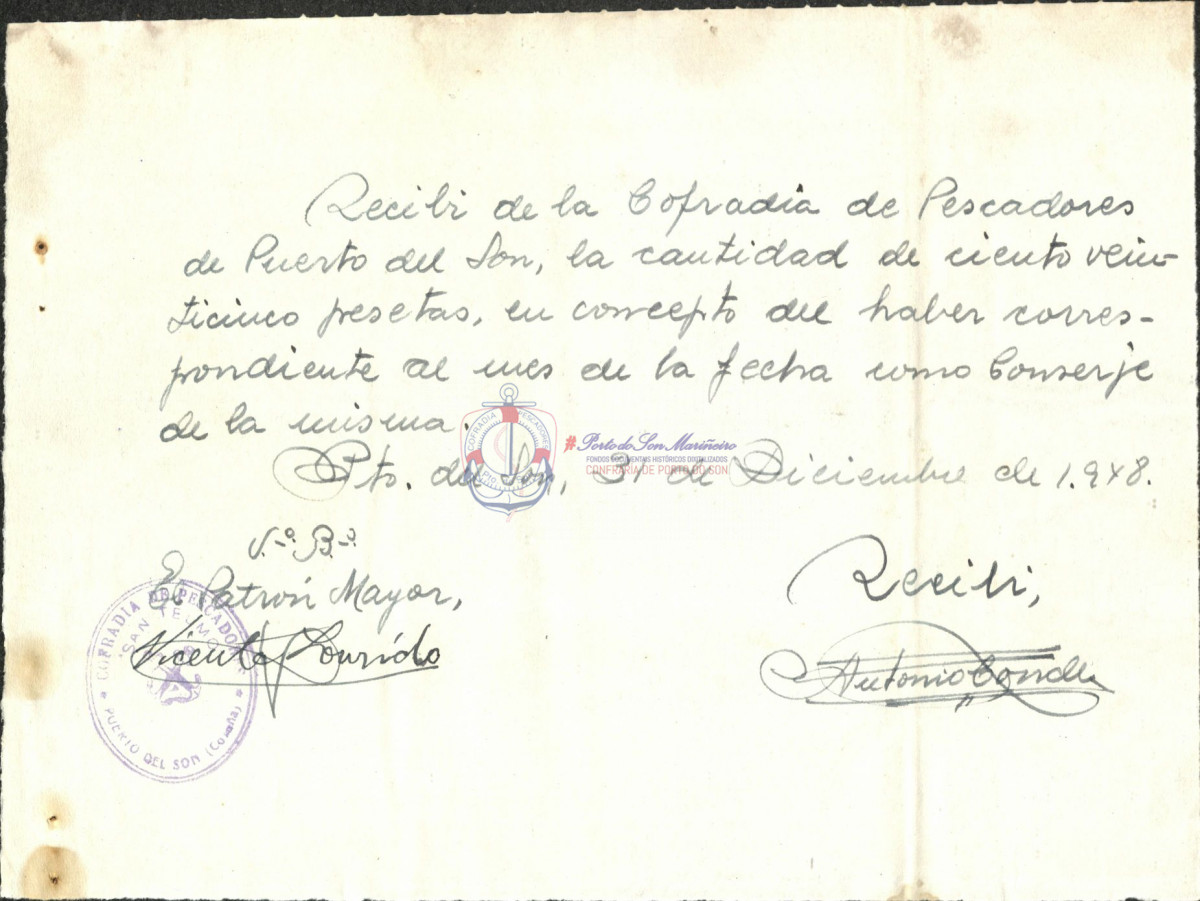 Recibi de la Cofradia de Pescadores
de Puerto del Son, la cantidad de ciento vein-
ticinco pesetas, en concepto del haber corres-
pondiente al mes de la fecha como Conserje
de la misma.
COFRADIA PESCADORES
#PortodoSonMariñeiro
FONDOS DOCUMENTAIS HISTÓRICOS DIXITALIZADOS
CONFRARÍA DE PORTO DO SON
Pto. del Son, 31 de Diciembre de 1.948.
V.º B.º
El Patrón Mayor,
Vicente Lourido
COFRADIA DE PESCADORES
"SAN TELMO"
PUERTO DEL SON (Coruña)
Recibi,
Antonio Conde